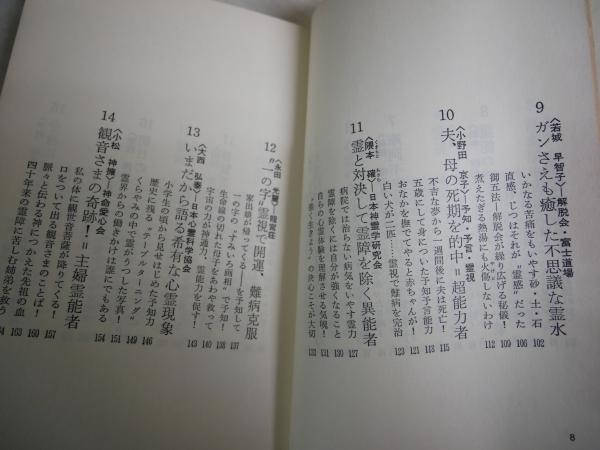 9 〈若城 早智子〉―解脱会・富士道場
ガンさえも癒した不思議な霊水
いかなる苦痛をもいやす砂・土・石 102
直感、じつはそれが“霊感”だった 106
御五法・解脱会が繰り広げる秘儀! 109
煮えたぎる熱湯にも火傷しないわけ 112
10 〈小野田 京子〉―予知・予言・霊視
夫、母の死期を的中=超能力者
不吉な夢から一週間後に夫は死亡! 115
五歳にして身についた予知予言能力 118
おなかを撫でてやると赤ちゃんが! 121
白い犬が二匹……霊視で難病を完治 123
11 〈隈本 確〉―日本神霊学研究会
霊と対決して霊障を除く異能者
病院では治らない病気をいやす霊力 127
霊障を除くには自分が強くなること 130
自らの心霊体験を理解させる気魄! 131
12 〈永田 光 〉―隆宮荘
“一の字”霊視で開運、難病克服
家出娘が帰ってくる!―を予知して 137
一の字の“すみいろ画相”で予知! 138
生命線の切れた母子をあわや救って 140
宇宙の力が神通力、霊能力を促す! 143
13 〈大西 弘泰〉―日本心霊科学協会
いまだから語る希有な心霊現象
小学生の頃から見せはじめた予知力 146
歴史に残る“テーブルターニング” 148
くらやみの中で霊がうつった写真! 149
霊界からの働きかけは誰にでもある 151
14 〈小松 神擁〉―神命愛心会
観音さまの奇跡!=主婦霊能者 154
私の体に観世音菩薩が降りてくる!
口をついて出る観音さまのことば!
脈々と伝わる神につかえた先祖の血
四十年来の霊障に苦しむ姉弟を救う
8